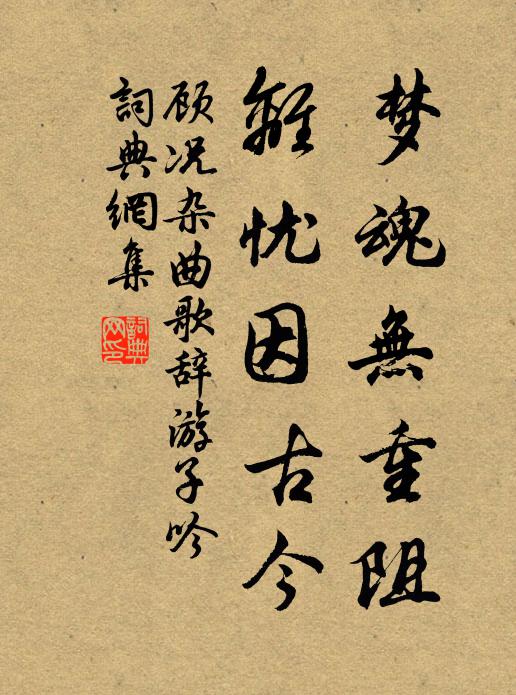 梦魂無重阻
離忧因古今
顾况杂曲歌辞游子吟
詞典網集
詞典
网印